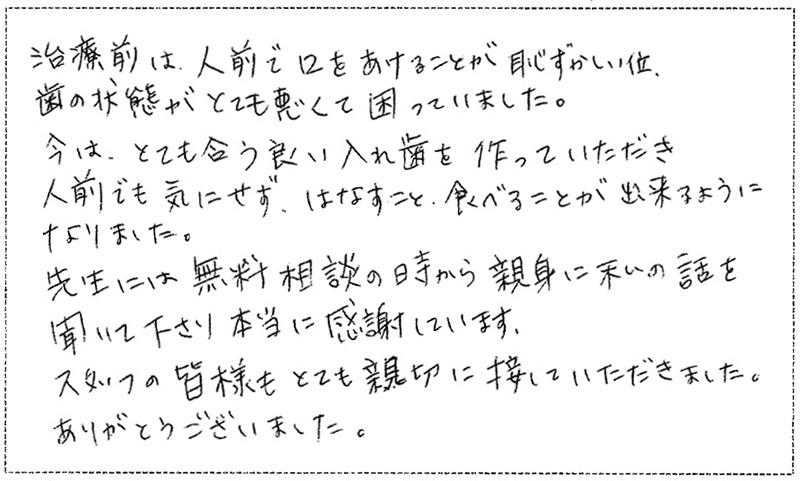 治療前は、人前で口をあけることが恥ずかしい位、
歯の状態がとても悪くて困っていました。
今は、とても合う良い入れ歯を作っていただき
人前でも気にせず、はなすこと、食べることが出来るように
なりました。
先生には無料相談の時から親身に私の話を
聞いて下さり本当に感謝しています。
スタッフの皆様もとても親切に接していただきました。
ありがとうございました。